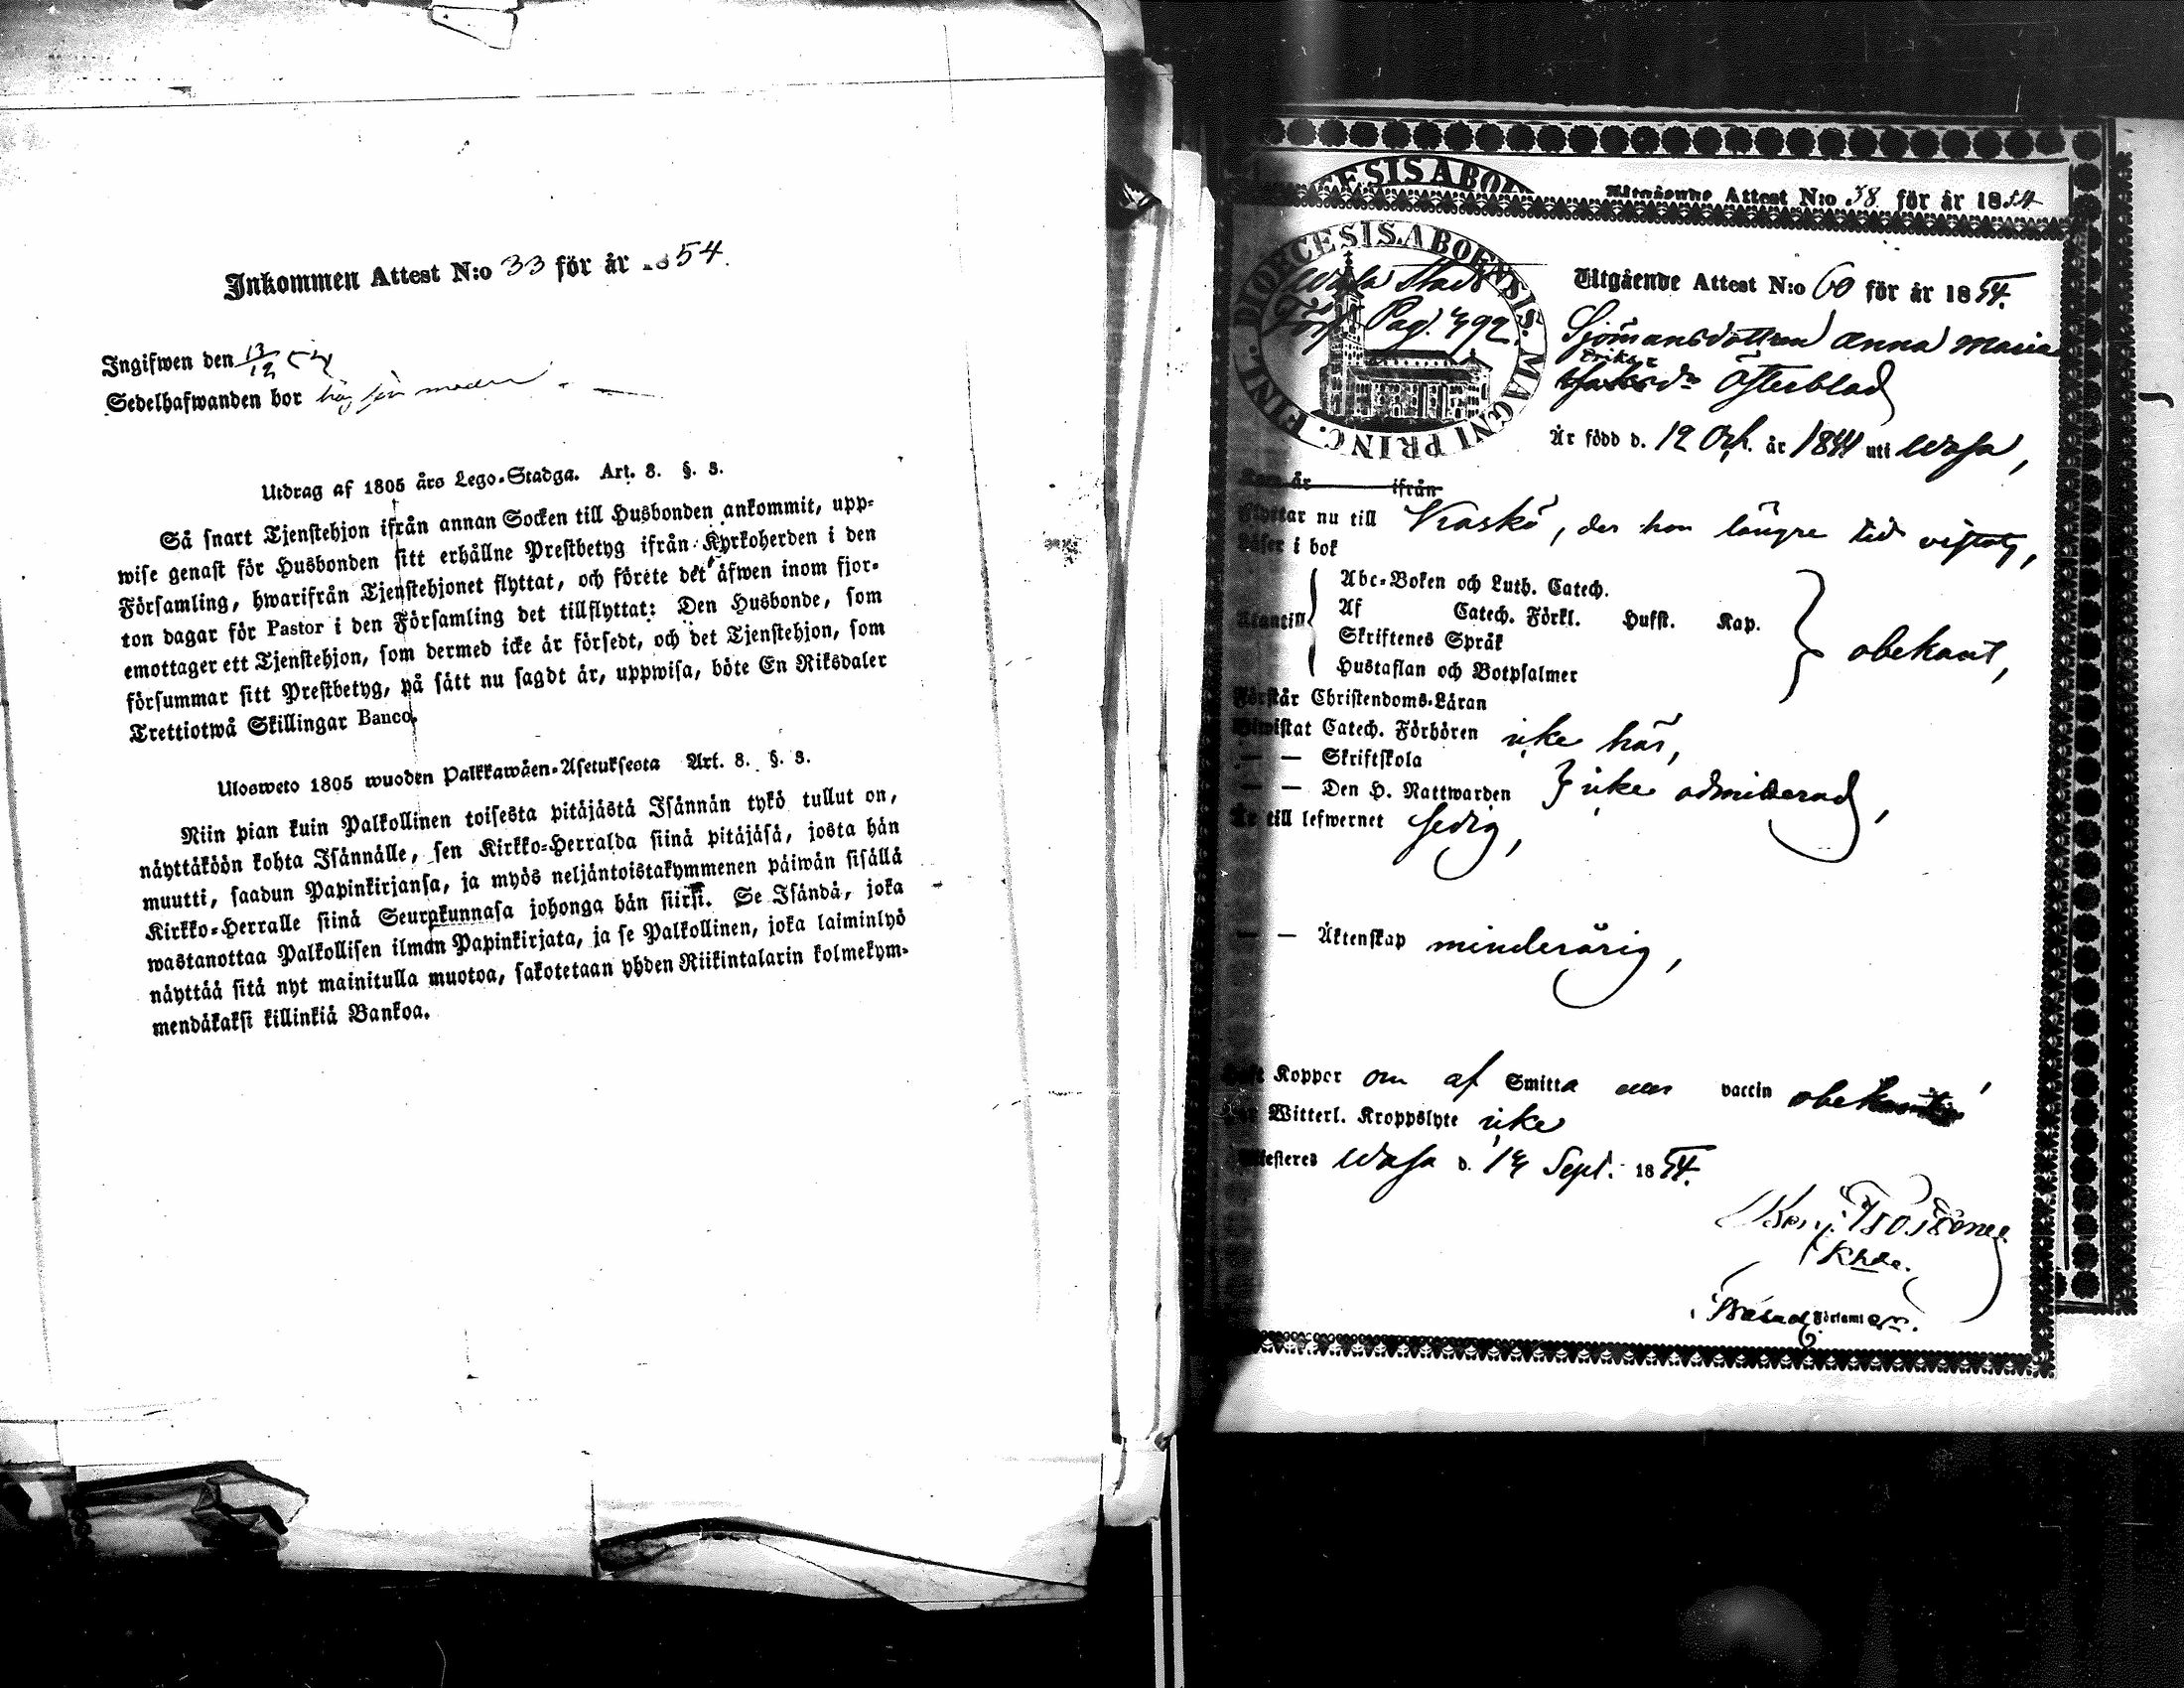 Inkommen Attest N:o 33 för år 1854.
Ingifwen den 13/12 54
Sedelhafwanden bor hos sin moder. —
Utdrag af 1805 års Lego-Stadga. Art. 8. §. 3.
Så snart Tjenstehjon ifrån annan Socken till Husbonden ankommit, upp-
wise genast för Husbonden sitt erhållne Prestbetyg ifrån Kyrkoherden i den
Församling, hwarifrån Tjenstehjonet flyttat, och förete det äfwen inom fjor-
ton dagar för Pastor i den Församling det tillflyttat: Den Husbonde, som
emottager ett Tjenstehjon, som dermed icke är försedt, och det Tjenstehjon, som
försummar sitt Prestbetyg, på sätt nu sagdt är, uppwisa, böte En Riksdaler
Trettiotwå Skillingar Banco.
Ulosweto 1805 wuoden Palkkawäen-Asetuksesta Art. 8. §. 3.
Niin pian kuin Palkollinen toisesta pitäjästä Isännän tykö tullut on,
näyttäköön kohta Isännälle, sen Kirkko-Herralda siinä pitäjäsä, josta hän
muutti, saadun Papinkirjansa, ja myös neljäntoistakymmenen päiwän sisällä
Kirkko-Herralle siinä Seurakunnasa johonga hän siirsi. Se Isändä, joka
wastanottaa Palkollisen ilman Papinkirjata, ja se Palkollinen, joka laiminlyö
näyttää sitä nyt mainitulla muotoa, sakotetaan yhden Riikintalarin kolmekym-
mendäkaksi killinkiä Bankoa.
Utgående Attest N:o 38 för år 1854
DIOECESIS ABOENSIS. MAGNI PRINC. FINL.
Wasa Stads
Förs. Pag. 492.
Utgående Attest N:o 60 för år 1854.
Sjömansdottren Anna Maria
Eriks
dr Österblad
Är född d. 12 Oct. år 1841 uti Wasa,
Kom år ifrån
Flyttar nu till Kaskö, der hon längre tid vistats,
Läser i bok
Utantill
Abc-Boken och Luth. Catech.
Af Catech. Förkl. Hufst. Kap.
Skriftenes Språk
Hustaflan och Botpsalmer
obekant,
Förstår Christendoms-Läran
Biwistat Catech. Förhören icke här,
— — Skriftskola
— — Den H. Nattwarden icke admitterad,
Är till lefwernet sedig,
— — Äktenskap minderårig,
Haft Koppor om af Smitta eller vaccin obekant
Har Witterl. Kroppslyte icke
Attesteras Wasa d. 14 Sept. 1854.
Khde.